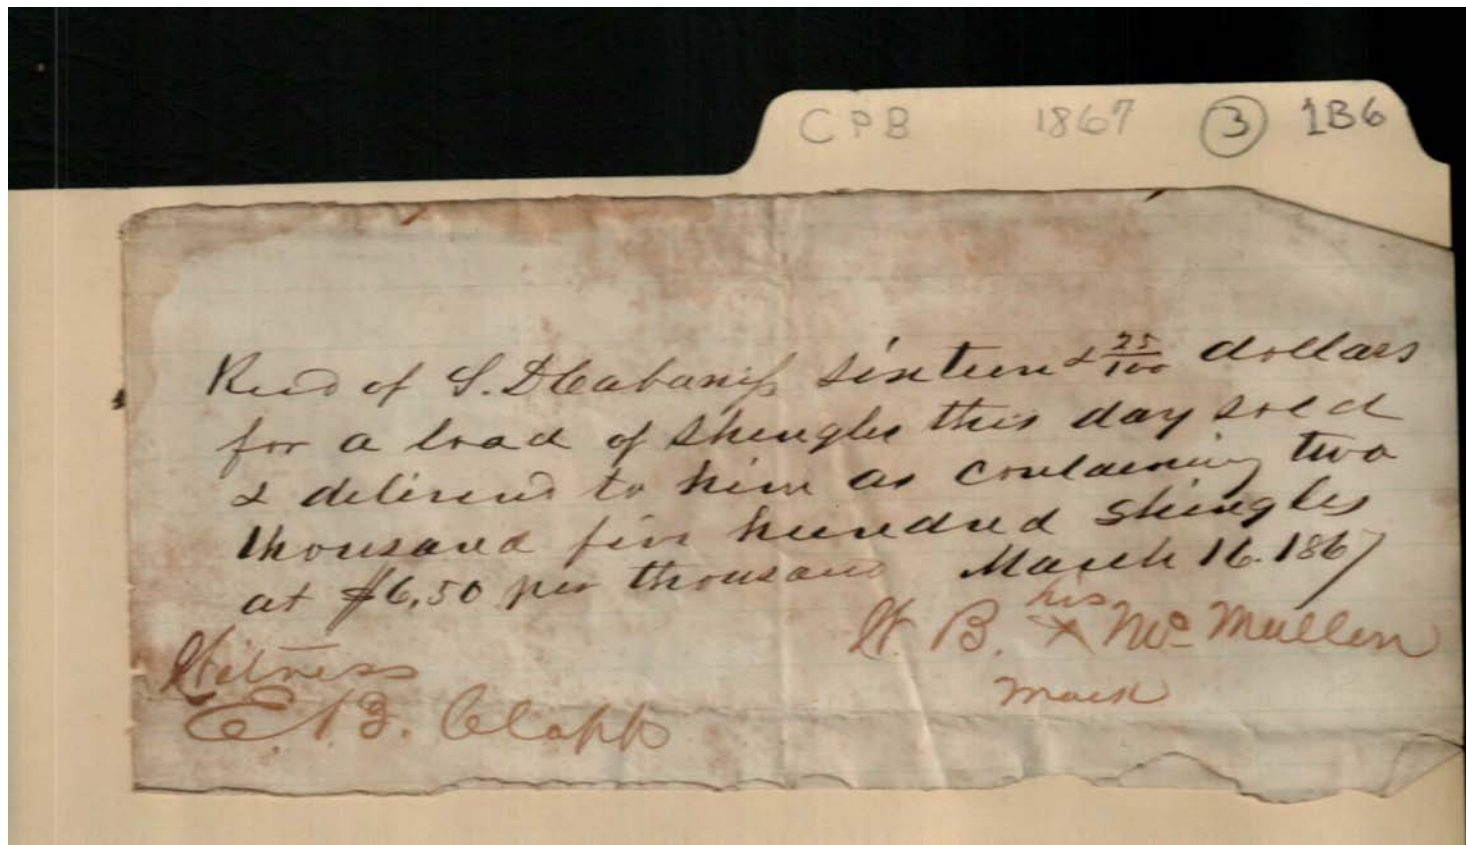 CPB 1867 3 1B6
Recd of S. D Cabaniss sixteen & 25/100 dollars
for a load of shingles this day sold
& delivered to him as containing two
thousand five hundred shingles
at $6,50 per thousand March 16. 1867
his
W. B. x McMullen
mark
Witness
E. B. Clapp